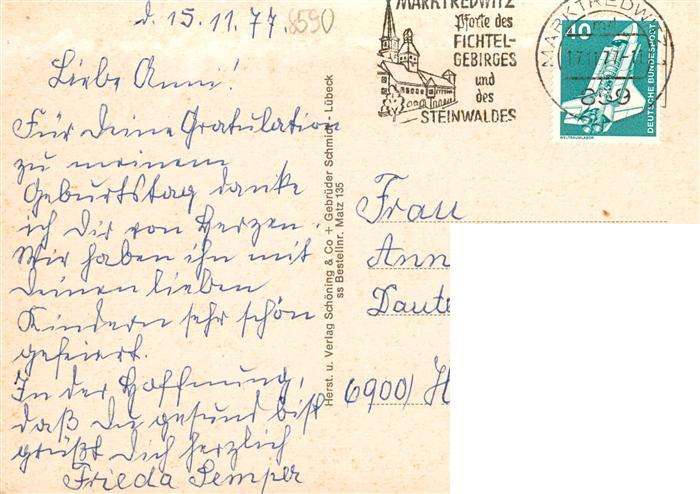 d. 15.11.77.
8590
Liebe Anni!
Für Deine Gratulation
zu meinem
Geburtstag danke
ich Dir von Herzen.
Wir haben ihn mit
Deinen lieben
Kindern sehr schön
gefeiert.
In der Hoffnung,
daß Du gesund bist
grüßt Dich herzlich
Frieda Semper
Herst. u. Verlag Schöning & Co + Gebrüder Schmidt, Lübeck
ss Bestellnr. Matz 135
MARKTREDWITZ
Pforte des
FICHTEL-
GEBIRGES
und
des
STEINWALDES
MARKTREDWITZ
859
40
DEUTSCHE BUNDESPOST
WELTRAUMLABOR
Frau
Ann
Daute
6900 H